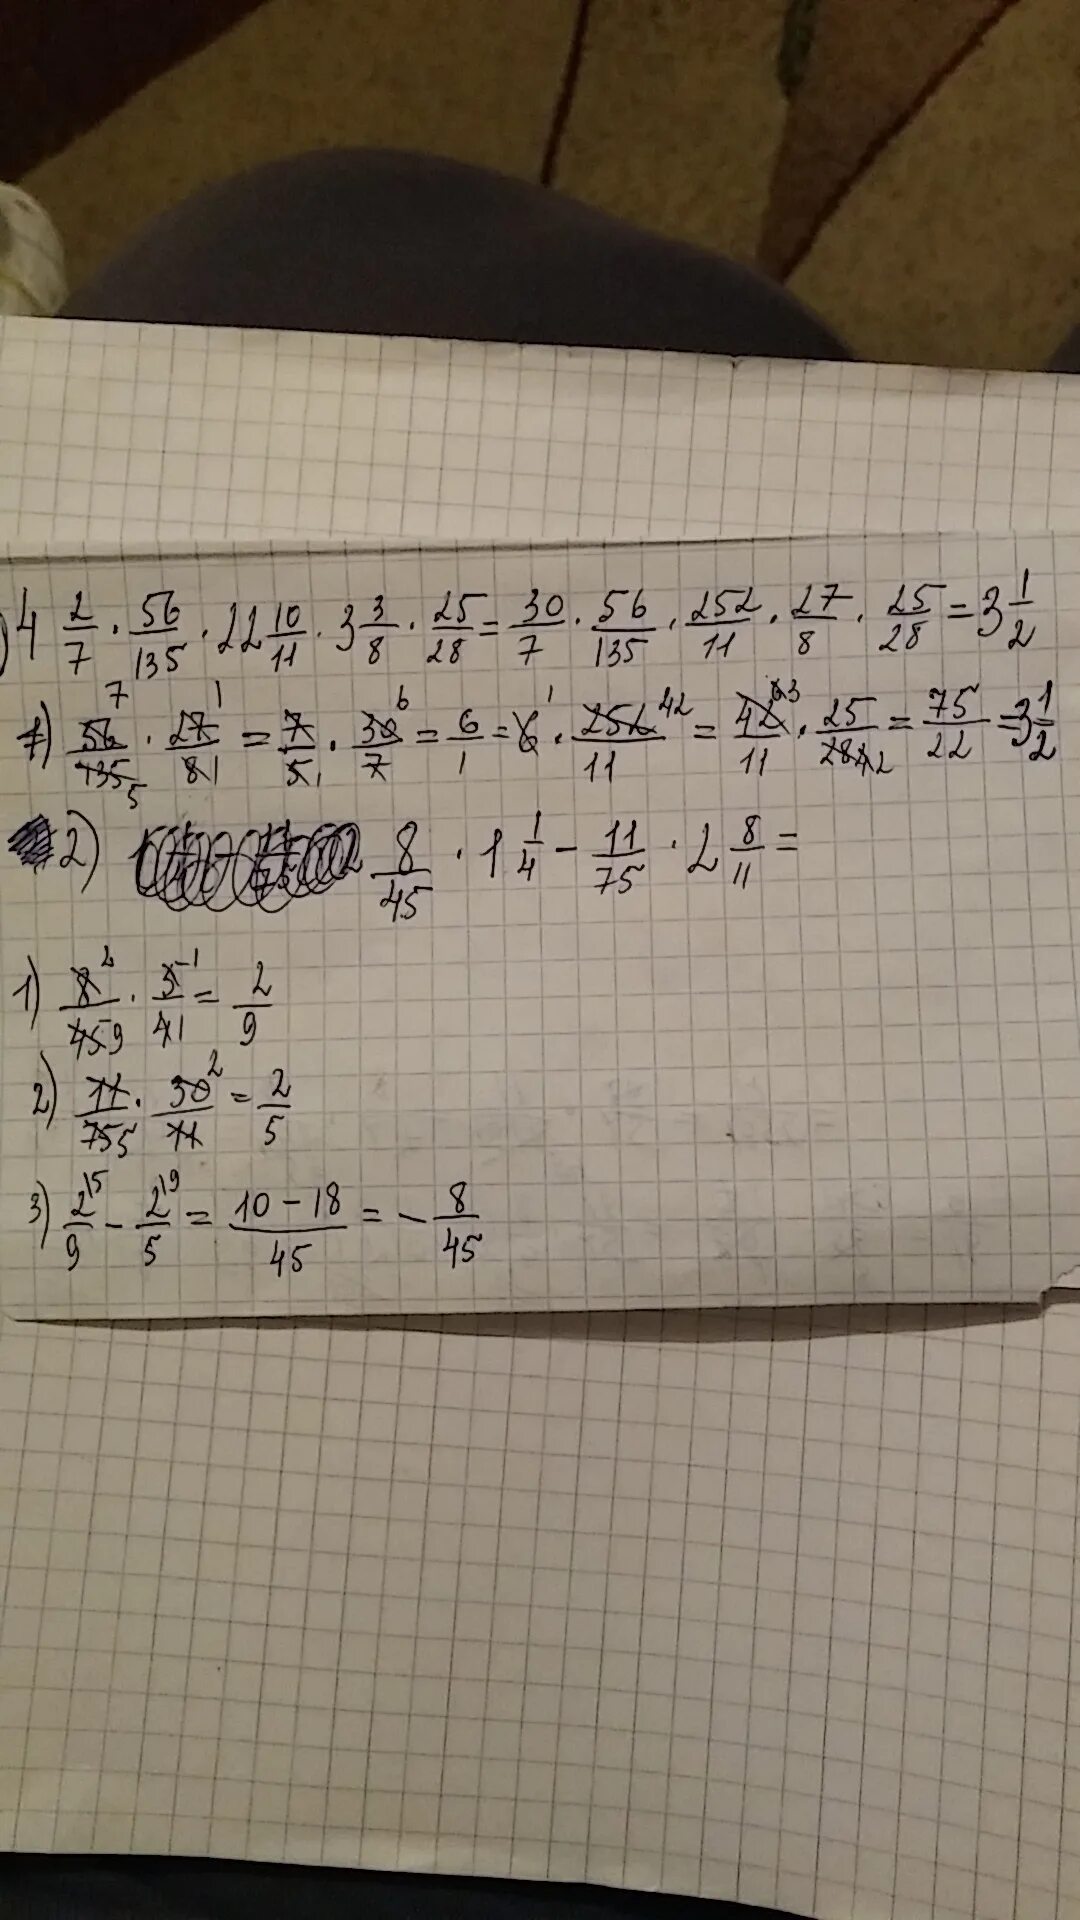 ) 4 2/7 · 56/135 · 22 10/11 · 3 3/8 · 25/28 = 30/7 · 56/135 · 252/11 · 27/8 · 25/28 = 3 1/2
1) 56 7/135 5 · 27 1/8 1 = 7/5 1 · 30 6/7 = 6/1 = 6 1 · 252 42/11 = 42 63/11 · 25/28 42 = 75/22 = 3 1/2
2) 8/45 · 1 1/4 - 11/75 · 2 8/11 =
1) 8 2/45 9 · 5 1/4 1 = 2/9
2) 11/75 5 · 30 2/11 = 2/5
3) 2 15/9 - 2 19/5 = 10 - 18/45 = - 8/45